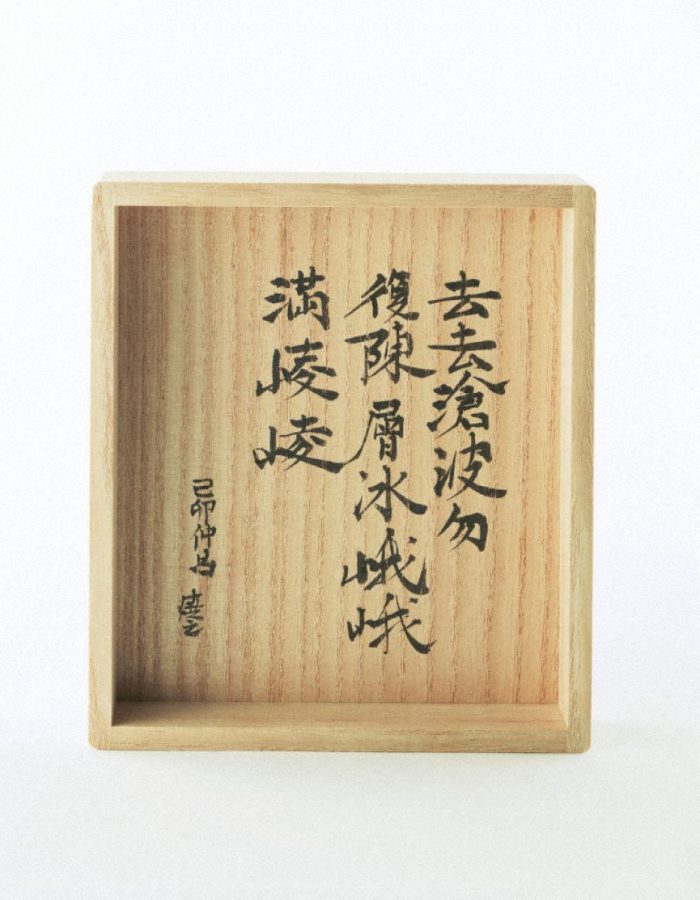 去去滄波勿
復陳層冰峨峨
満崚崚
己卯仲呂